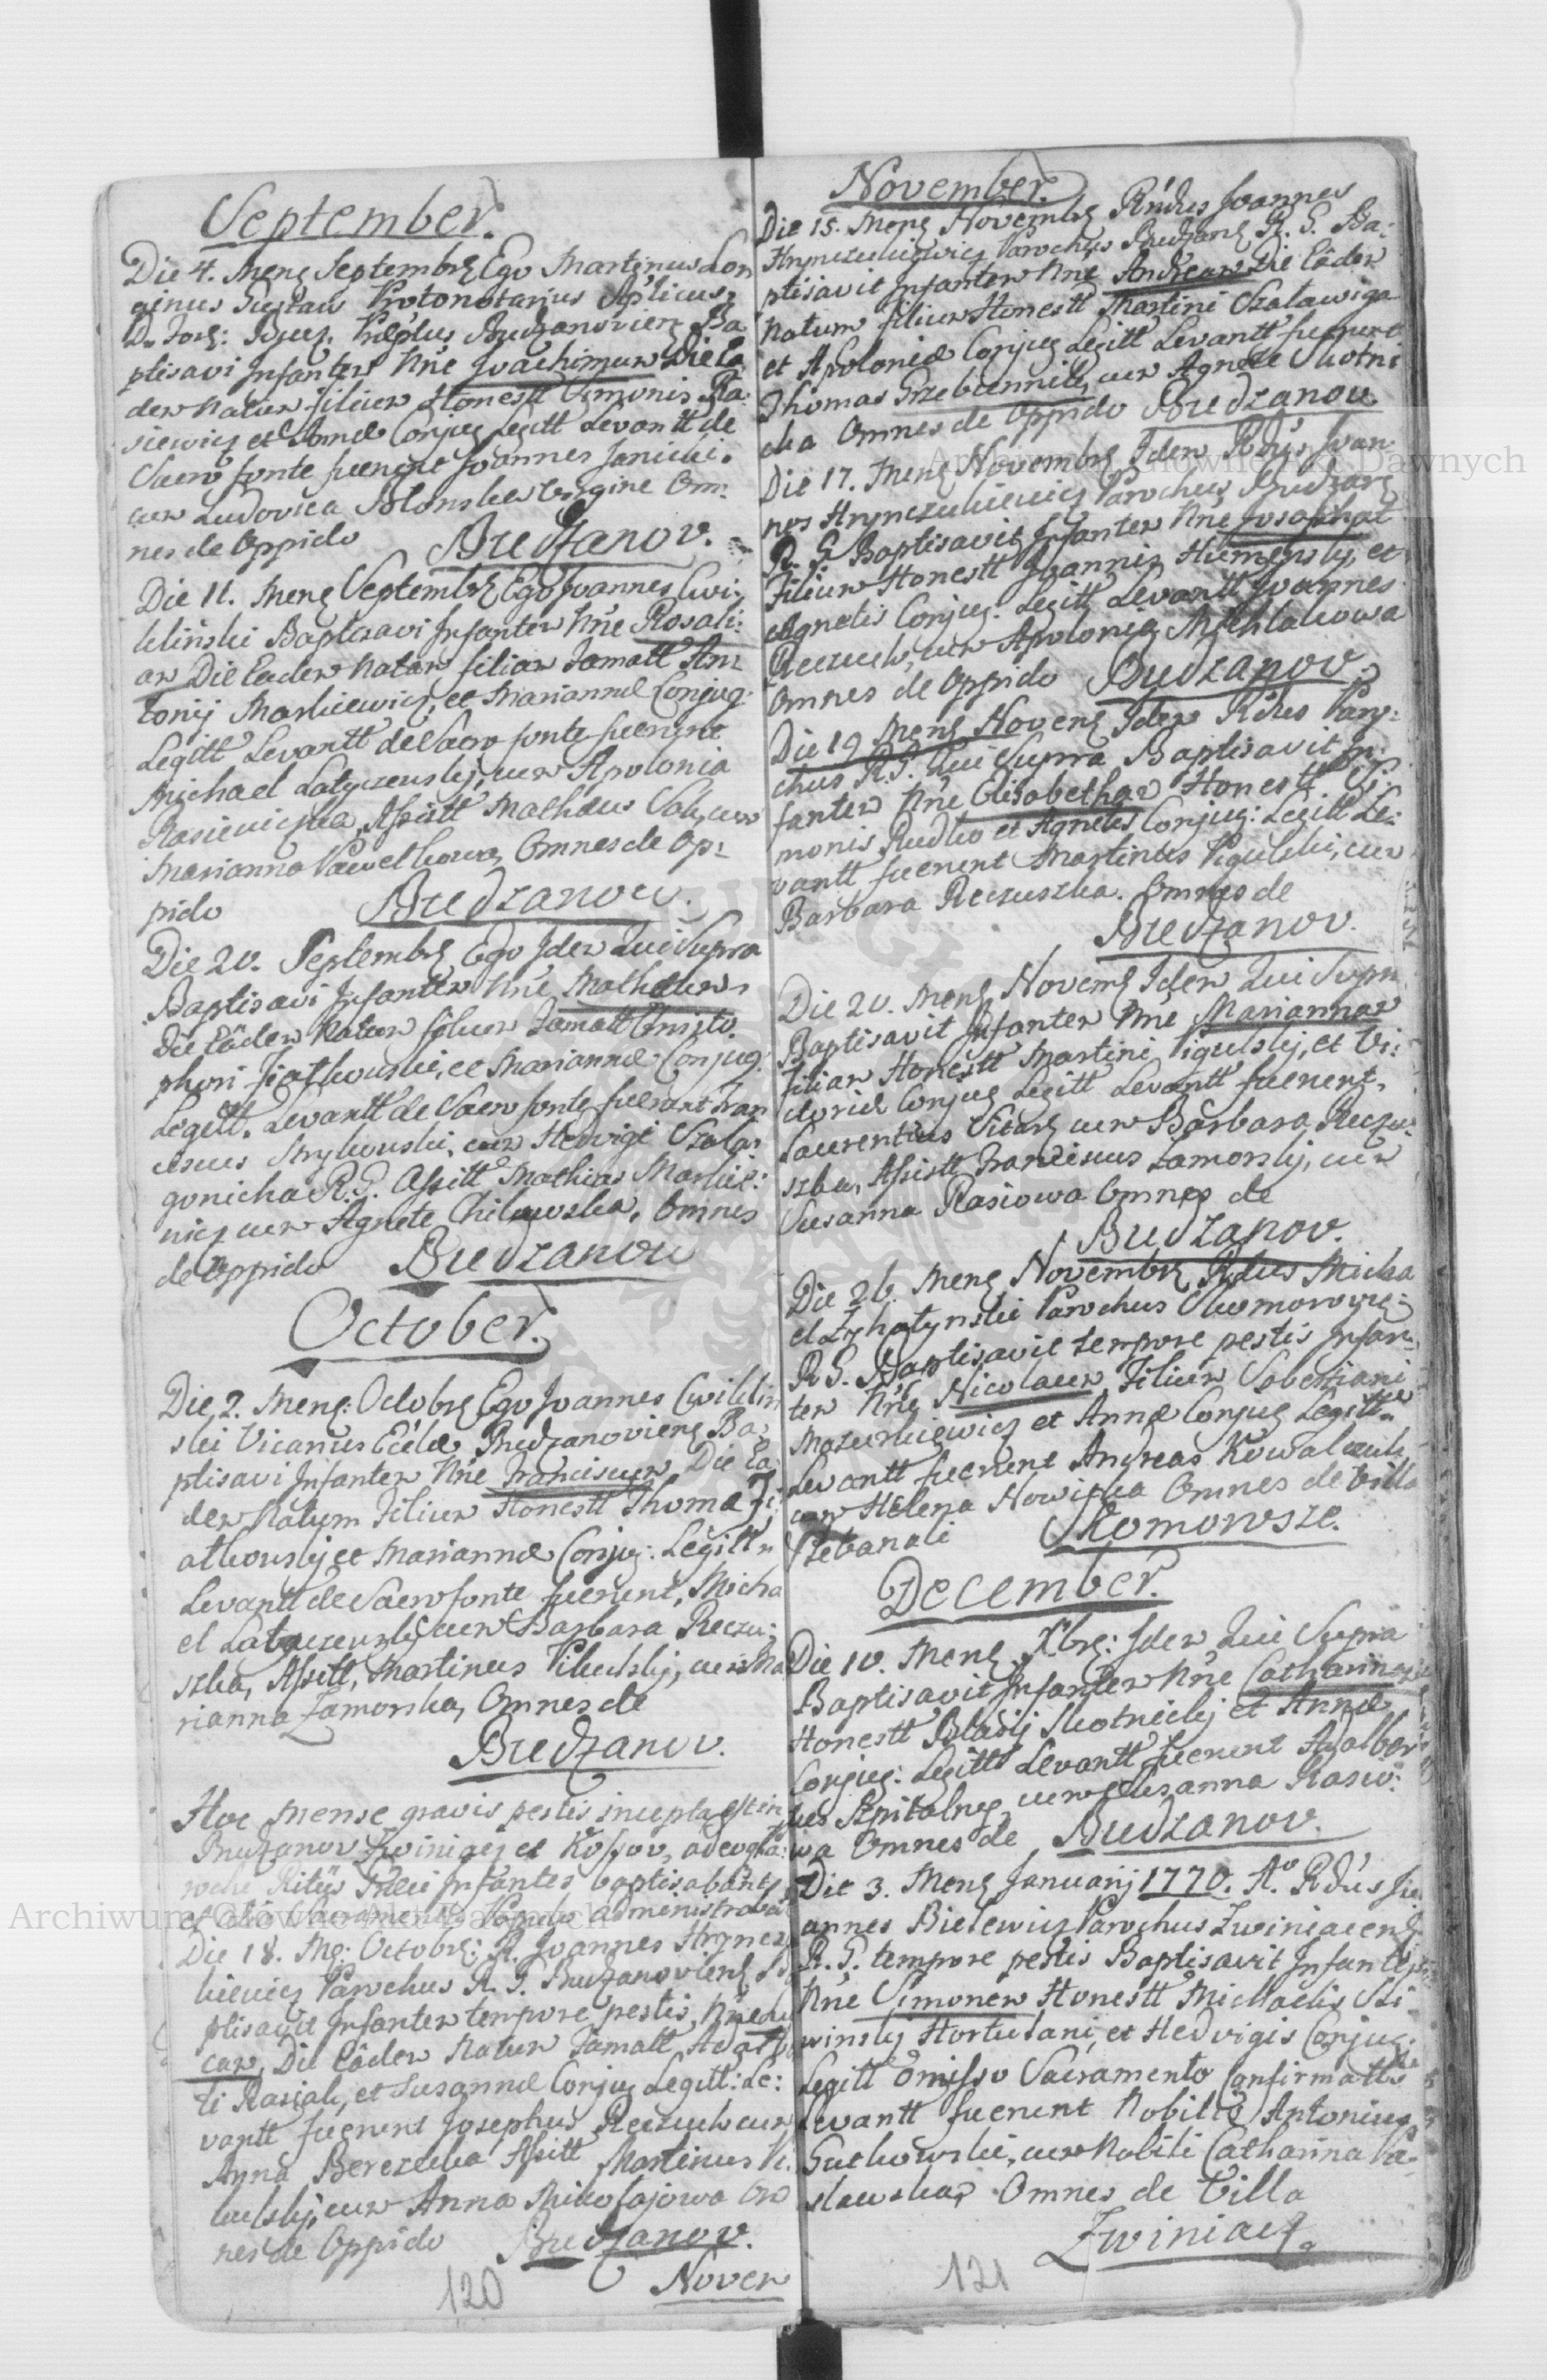 September.
Die 4. Mens Septembrs Ego Martinus Lon
ginus Protonotarius Aplicus,
Ba
ptisavi Infantem Nne Joachimum Die Ea
dem Natum filium Honestt Simonis Ra:
siewicz et Annæ Conjug Legitt Levantt de
Sacro fonte fuerunt Joannes Janicki.
cum Ludovica Blonska Virgine Om:
nes de Oppido Budzanov.
Die 11. Mens Septembrs Ego Joannes Cwi:
kliński Baptisavi Infantem Nne Rosali:
am Die Eadem Natam filiam Famatt An:
tonij Markiewicz, et Mariannæ Conjug.
Legitt Levantt de Sacro fonte fuerunt
Michael Latyczewskj, cum Apolonia
Rasiewiczka, Assistt Mathæus cum
Marianna Pawelkowa, Omnes de Op:
pido Budzanov.
Die 20. Septembrs Ego Idem Qui Supra
Baptisavi Infantem Nne Mathæum
Die Eâdem Natum filium Famatt Christo
phori et Mariannæ Conjug.
Legitt. Levantt de Sacro fonte fuerunt Fran
ciscus Strykowski, cum Hedvigi Szala:
gonicha R. G. Assistt Mathias Markie:
wicz cum Agnete Chilewska, Omnes
de Oppido Budzanov
October.
Die 2. Mens: Octobrs Ego Joannes Cwiklin
ski Vicarius Ecclæ Budzanoviens Ba,
ptisavi Infantem Nne Franciscum, Die Ea:
dem Natum Filium Honestt Thomæ
et Mariannæ Conjug: Legitt
Levantt de Sacro fonte fuerunt, Micha
el Latyczewskj cum Barbara Reczu:
szka, Assistt, Martinus cum Ma
rianna Zamorska, Omnes de
Budzanov.
Hoc Mense gravis pestis incepta est in
Budzanov Zwiniacz et Kossov, adeo
Ritus Græci Infantes baptisabant
et alia Sacramenta Populo administraba
Die 18. Ms: Octobrs: R. Joannes Hryncz
kiewicz Parochus R. G. Budzanoviens Ba
ptisavit Infantem tempore pestis, Nne Lu
cam, Die Eâdem Natum Famatt Adalb
ti Rasiak, et Susannæ Conjug Legitt: Le:
vantt fuerunt Josephus Reczuch cum
Anna Berezka Assistt Martinus
cum Anna Mikolajowa Om
nes de Oppido Budzanov.
Novem
120
November.
Die 15. Mens Novembrs Rndus Joannes
Hrynczukiewicz Parochus Budzans R. G. Ba:
ptisavit Infantem Nne Andream Die Eâdem
Natum filium Honestt Martini Szalawiga
et Apoloniæ Conjug Legitt Levantt fuerunt
Thomas Grzebiennik, cum Agnete Skotni
cka Omnes de Oppido Budzanov.
Die 17. Mens Novembrs Idem Rdus Joan
nes Hrynczukiewicz Parochus Budzans
R. G. Baptisavit Infantem Nne Josaphat
Filium Honestt Joannis et
Agnetis Conjug: Legitt Levantt Joannes
Reczuch, cum Apolonia Michlakowa
Omnes de Oppido Budzanov.
Die 19 Mens Novems Idem Rdus Paro:
chus R. G. Qui Supra Baptisavit In:
fantem Nne Elisabetham Honestt Si:
monis Rudko et Agnetis Conjug: Legitt Le:
vantt fuerunt Martinus Pigulski, cum
Barbara Reczuszka. Omnes de
Budzanov.
Die 20. Mens Novems Idem Qui Supra
Baptisavit Infantem Nne Mariannam
filiam Honestt Martini Pigulskj, et Vi:
ctoriæ Conjug Legitt Levantt fuerunt
Laurentius cum Barbara Reczu:
szka, Assistt Franciscus Zamorskj, cum
Susanna Rasiowa Omnes de
Budzanov.
Die 26. Mens Novembrs Rdus Micha
el Parochus
R G. Baptisavit tempore pestis Infan:
tem Nne Nicolaum Filium Sebastiani
Mazurkiewicz et Annæ Conjug Legitt
Levantt fuerunt Andreas Kowalczuk
cum Helena Nowicka Omnes de Villa
Skomorosze.
December.
Die 10. Mens Xbrs: Idem Qui Supra
Baptisavit Infantem Nne Catharinam
Honestt Blasij Skotnickj et Annæ
Conjug: Legitt Levantt fuerunt Adalber
tus Szpitalny cum Susanna Rasio:
wa Omnes de Budzanov.
Die 3. Mens Januarij 1770. Ao Rdus Jo
annes Bielewicz Parochus Zwiniacens
R. G. tempore pestis Baptisavit Infantem
Nne Simonem Honestt Michaelis Sli
winskj Hortulani, et Hedvigis Conjug.
Legitt Omisso Sacramento Confirmattis
Levantt fuerunt Nobilis Antonius
Gutkowski, cum Nobili Catharina
Omnes de Villa
Zwiniacz.
121
Archiwum Główne Akt Dawnych
Archiwum Główne Akt Dawnych